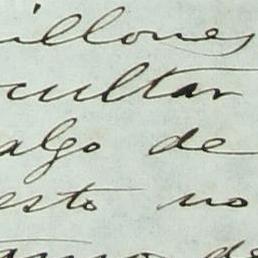 illones
cultar
algo de
esto no